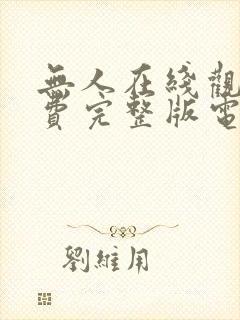 無人在綫觀
費完整版電
劉維用